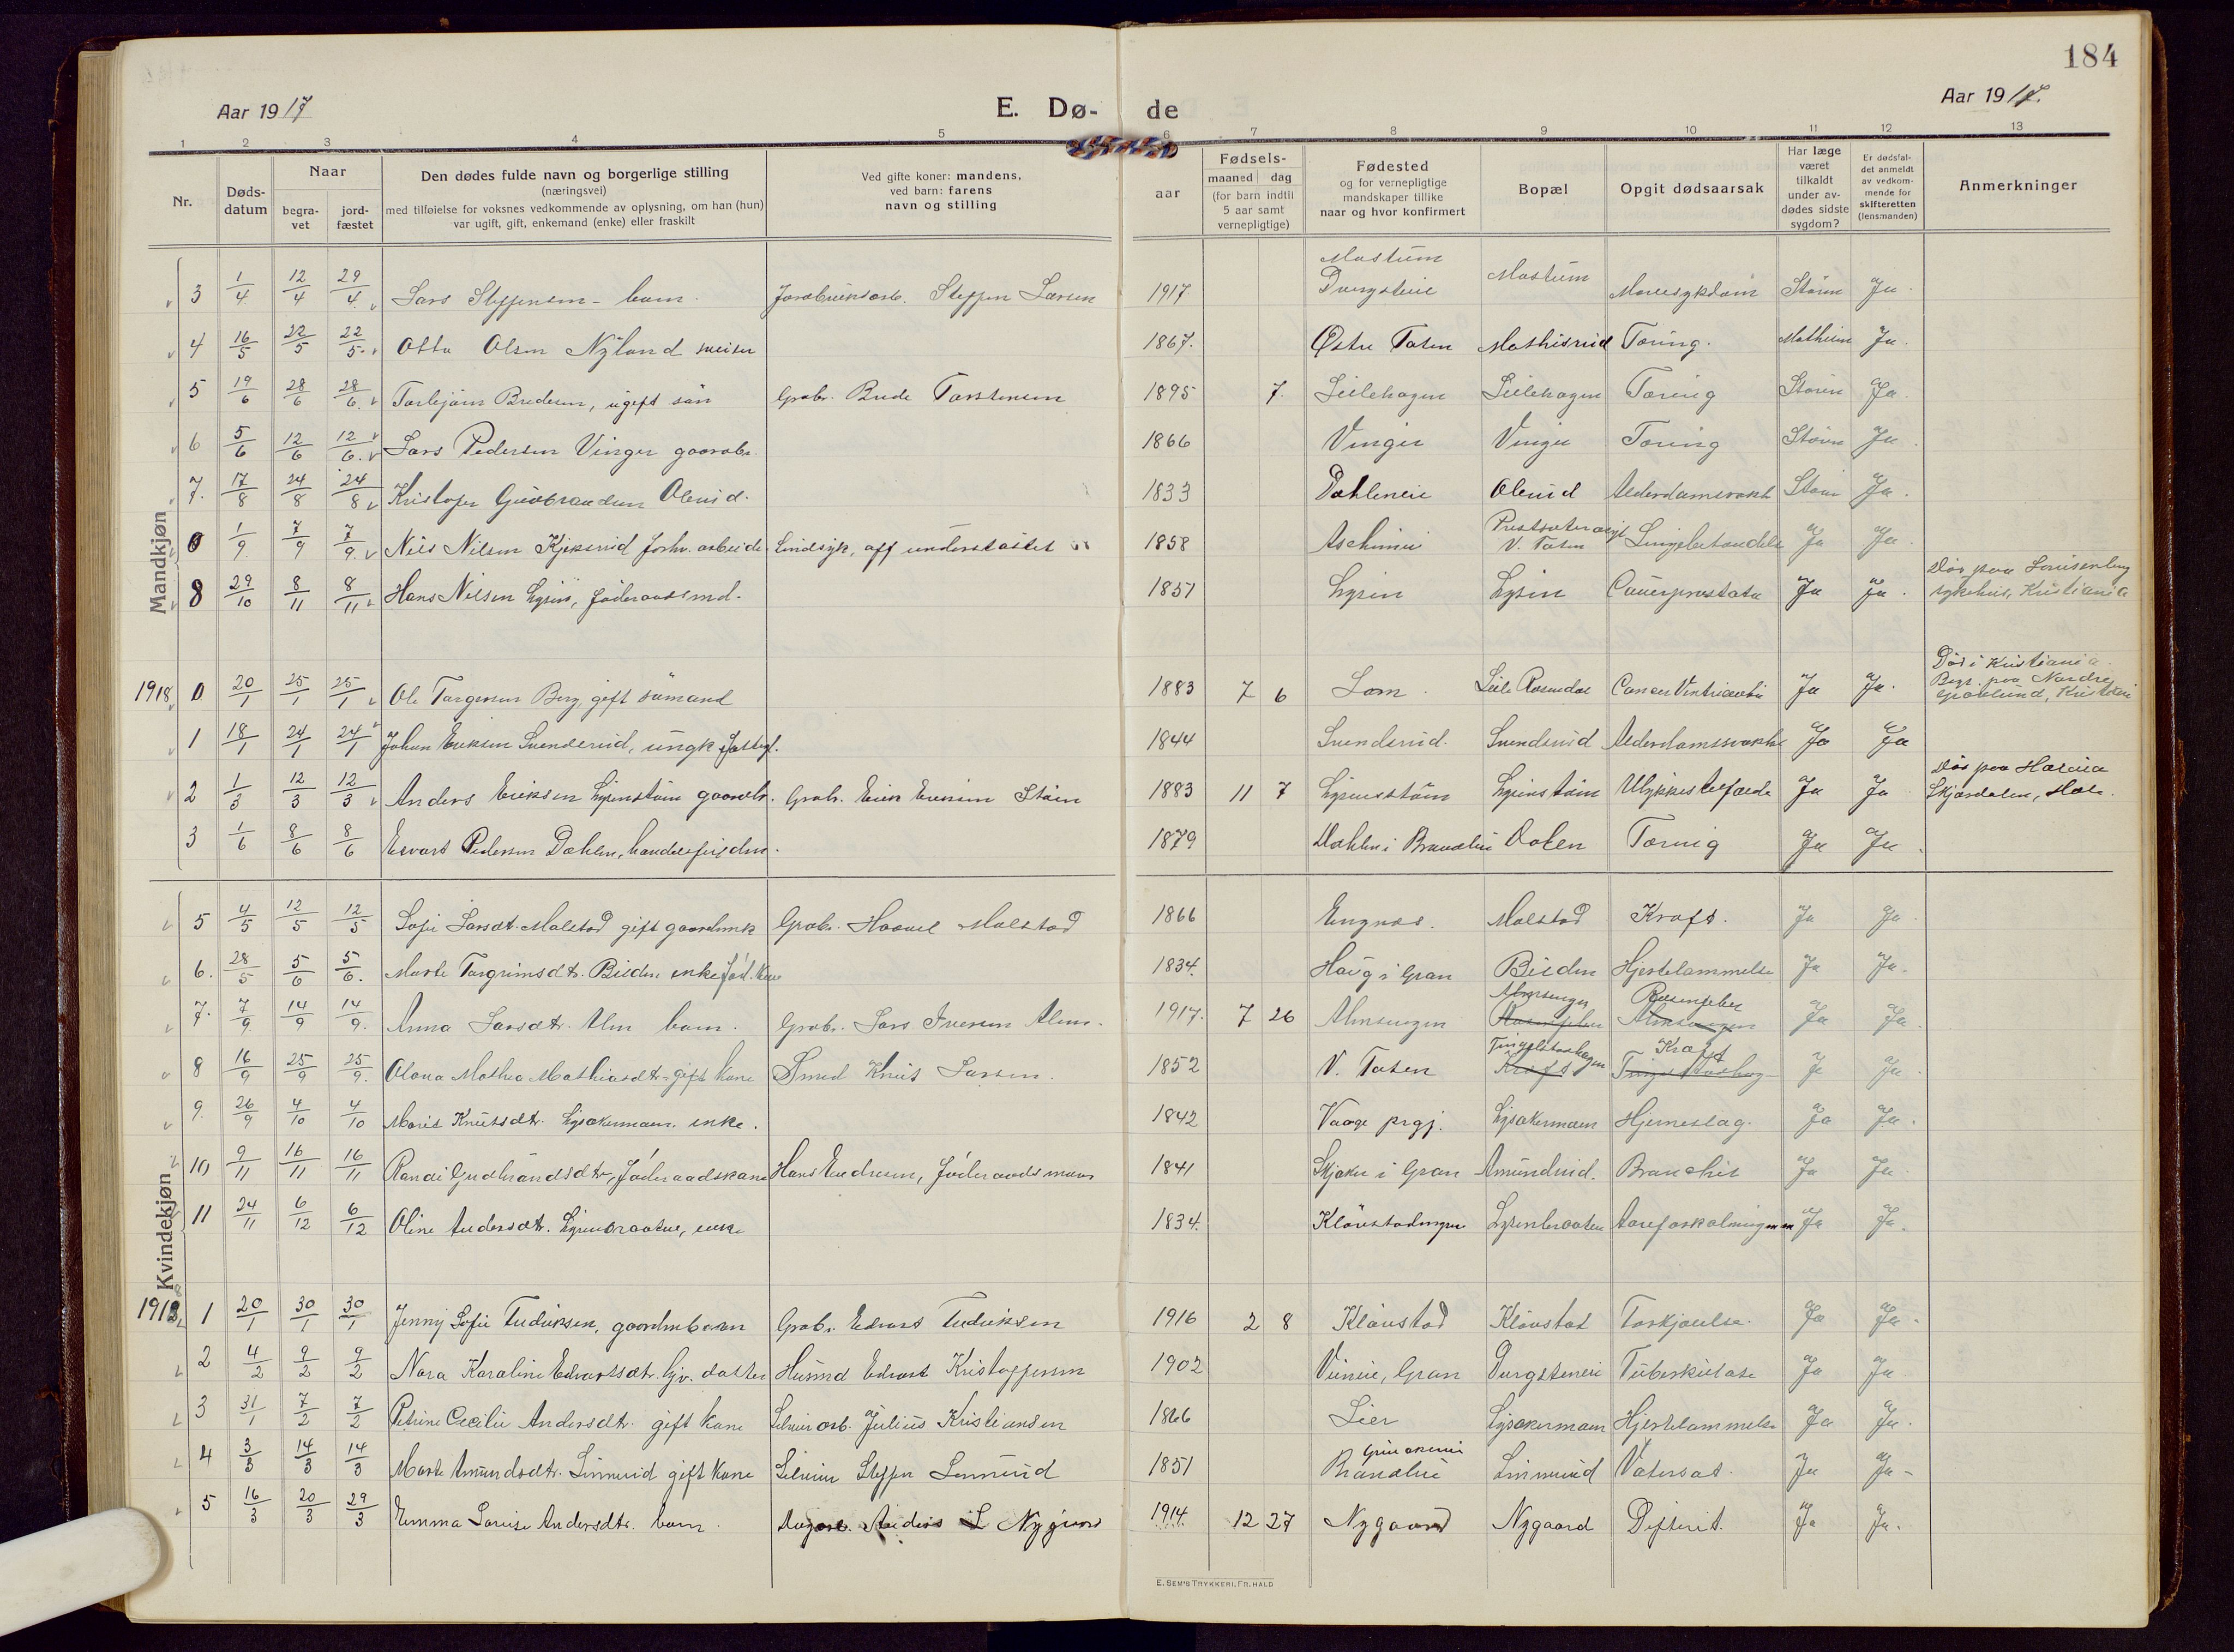 184
Aar 1917
E. Dø-
de
Aar 1917.
1 2 3 4 5 6 7 8 9 10 11 12 13
Nr.
Døds-
datum
Naar
begra-
vet
jord-
fæstet
Den dødes fulde navn og borgerlige stilling
(næringsvei)
med tilføielse for voksnes vedkommende av oplysning, om han (hun)
var ugift, gift, enkemand (enke) eller fraskilt
Ved gifte koner: mandens,
ved barn: farens
navn og stilling
aar
Fødsels-
maaned dag
(for barn indtil
5 aar samt
vernepligtige)
Fødested
og for vernepligtige
mandskaper tillike
naar og hvor konfirmert
Bopæl
Opgit dødsaarsak
Har læge
været
tilkaldt
under av-
dødes sidste
sygdom?
Er dødsfal-
det anmeldt
av vedkom-
mende for
skifteretten
(lensmanden)
Anmerkninger
Mandkjøn
3 1/4 12/4 29/4 Lars Steffensen - barn. Steffen Larsen 1917 Mostum Mostum Mavesykdom Støren Ja.
4 16/5 22/5 22/5 Otto Olsen Nyland sveiser 1867. Østre Toten Mathisrud Tæring. Ja.
5 19/6 28/6 28/6 Torbjørn Bredesen, ugift søn Gmbr. Brede Torstensen 1895 7. Leilehagen Leilehagen Tæring Støren Ja.
6 5/6 12/6 12/6 Lars Pedersen Vinger gaardbr. 1866 Vinger Vinger Tæring Støren Ja.
7. 17/8 24/8 24/8 Kristofer Gudbrandsen Olerud. 1833 Dahleneie Olerud Alderdomssvakh. Støren Ja.
0 1/9 7/9 7/9 Nils Nilsen Kjeksrud forhv. arbeider Sindsyk, off understøttet 1858 V. Toten Ja Ja.
8 29/10 8/11 8/11 Hans Nilsen Lysen, føderaadsmd. 1851 Lysen Lysen Cancer prostata Ja Ja. Død paa Lovisenberg
sykehus, Kristiania
1918 0 20/1 25/1 25/1 Ole Torgersen Berg, gift sømand 1883 7 6 Lom. Cancer Ventriculi Ja Ja. Død i Kristiania.
Begr. paa Nordre
Gravlund, Kristiania
1 18/1 24/1 24/1 Johan Eriksen Svendsrud, ungk. 1844 Svendsrud. Svendsrud Alderdomssvakhet Ja Ja
2 1/3 12/3 12/3 Anders Eriksen Lysenstøen gaardbr. Gmbr. Erik Eriksen Støen 1883 11 7 Lysenstøen Lysenstøen Ulykkestilfælde Ja Ja Død paa
Skjærdalen, Hole.
3 1/6 8/6 8/6 Edvart Pedersen Dahlen, handelsbetjent. 1879 Dahlen i Brandbu Dalen Tæring Ja Ja.
Kvindekjøn
5 4/5 12/5 12/5 Sofie Larsdt. Molstad gift gaardmk Gmbr. Haavel Molstad 1866 Engnæs. Molstad Kræft. Ja Ja.
6. 28/5 5/6 5/6. Marte Torgrimsdtr. Bilden enke fød. kone 1834. Haug i Gran Bilden Hjertelammelse Ja Ja.
7. 7/9 14/9 14/9. Anna Larsdtr. Alm barn. Gmbr. Lars Iversen Alm. 1917. 7 26 Almsengen Almsengen Rosenfeber Ja Ja.
8 16/9 25/9 25/9. Olava Mathea Mathiasdtr. gift kone Smed Knut Larsen. 1852 V. Toten Tingelstadhagen Kræft Ja Ja.
9. 26/9 4/10 4/10 Marit Knutsdtr. Lysakermoen. enke. 1842 Vaage prgj. Lysakermoen Hjerneslag. Ja Ja.
10 9/11 16/11 16/11 Randi Gudbrandsdtr, føderaadskone Hans Endresen, føderaadsmand 1841 Skjaker i Gran Amundrud. Bronchit Ja Ja.
11 24/11 6/12 6/12 Oline Andersdtr. Lysenbraaten, enke 1834. Lysenbraaten Aareforkalkningen Ja Ja.
1918 1 20/1 30/1 30/1 Jenny Sofie Fredriksen, gaardmbarn Gmbr. Edvart Fredriksen 1916 2 8 Kløvstad Kløvstad Forkjølelse. Ja Ja.
2 4/2 9/2 9/2 Nora Karoline Edvartsdt. hjv. datter Husmd Edvart Kristoffersen 1902 Vieneie, Gran Tuberkulose Ja Ja
3 31/1 7/2 7/2 Petrine Cecilie Andersdtr. gift kone Julius Kristiansen 1866 Lier Lysakermoen Hjertelammelse Ja Ja.
4 3/3 14/3 14/3 Marte Amundsdtr. Linnerud gift kone Selveier Steffen Linnerud 1851 Brandbu Linnerud Vatersot. Ja Ja
5 16/3 20/3 29/3 Emma Lovise Andersdtr. barn. Anders L Nygaard 1914. 12 27 Nygaard Nygaard Difterit. Ja Ja.
E. SEM'S TRYKKERI, FR.HALD